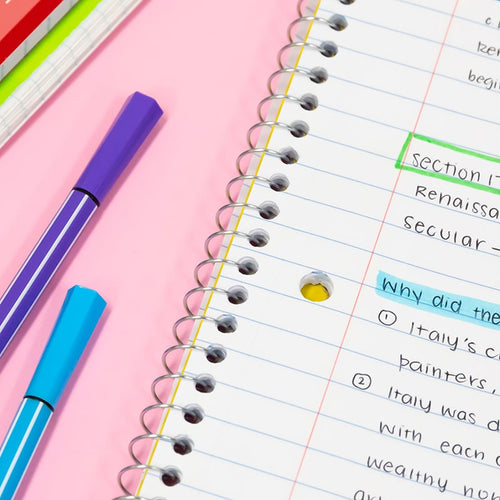 Section 1
Renaissa
Secular -
Why did the
① Italy's c
painters,
② Italy was d
with each o
wealthy no